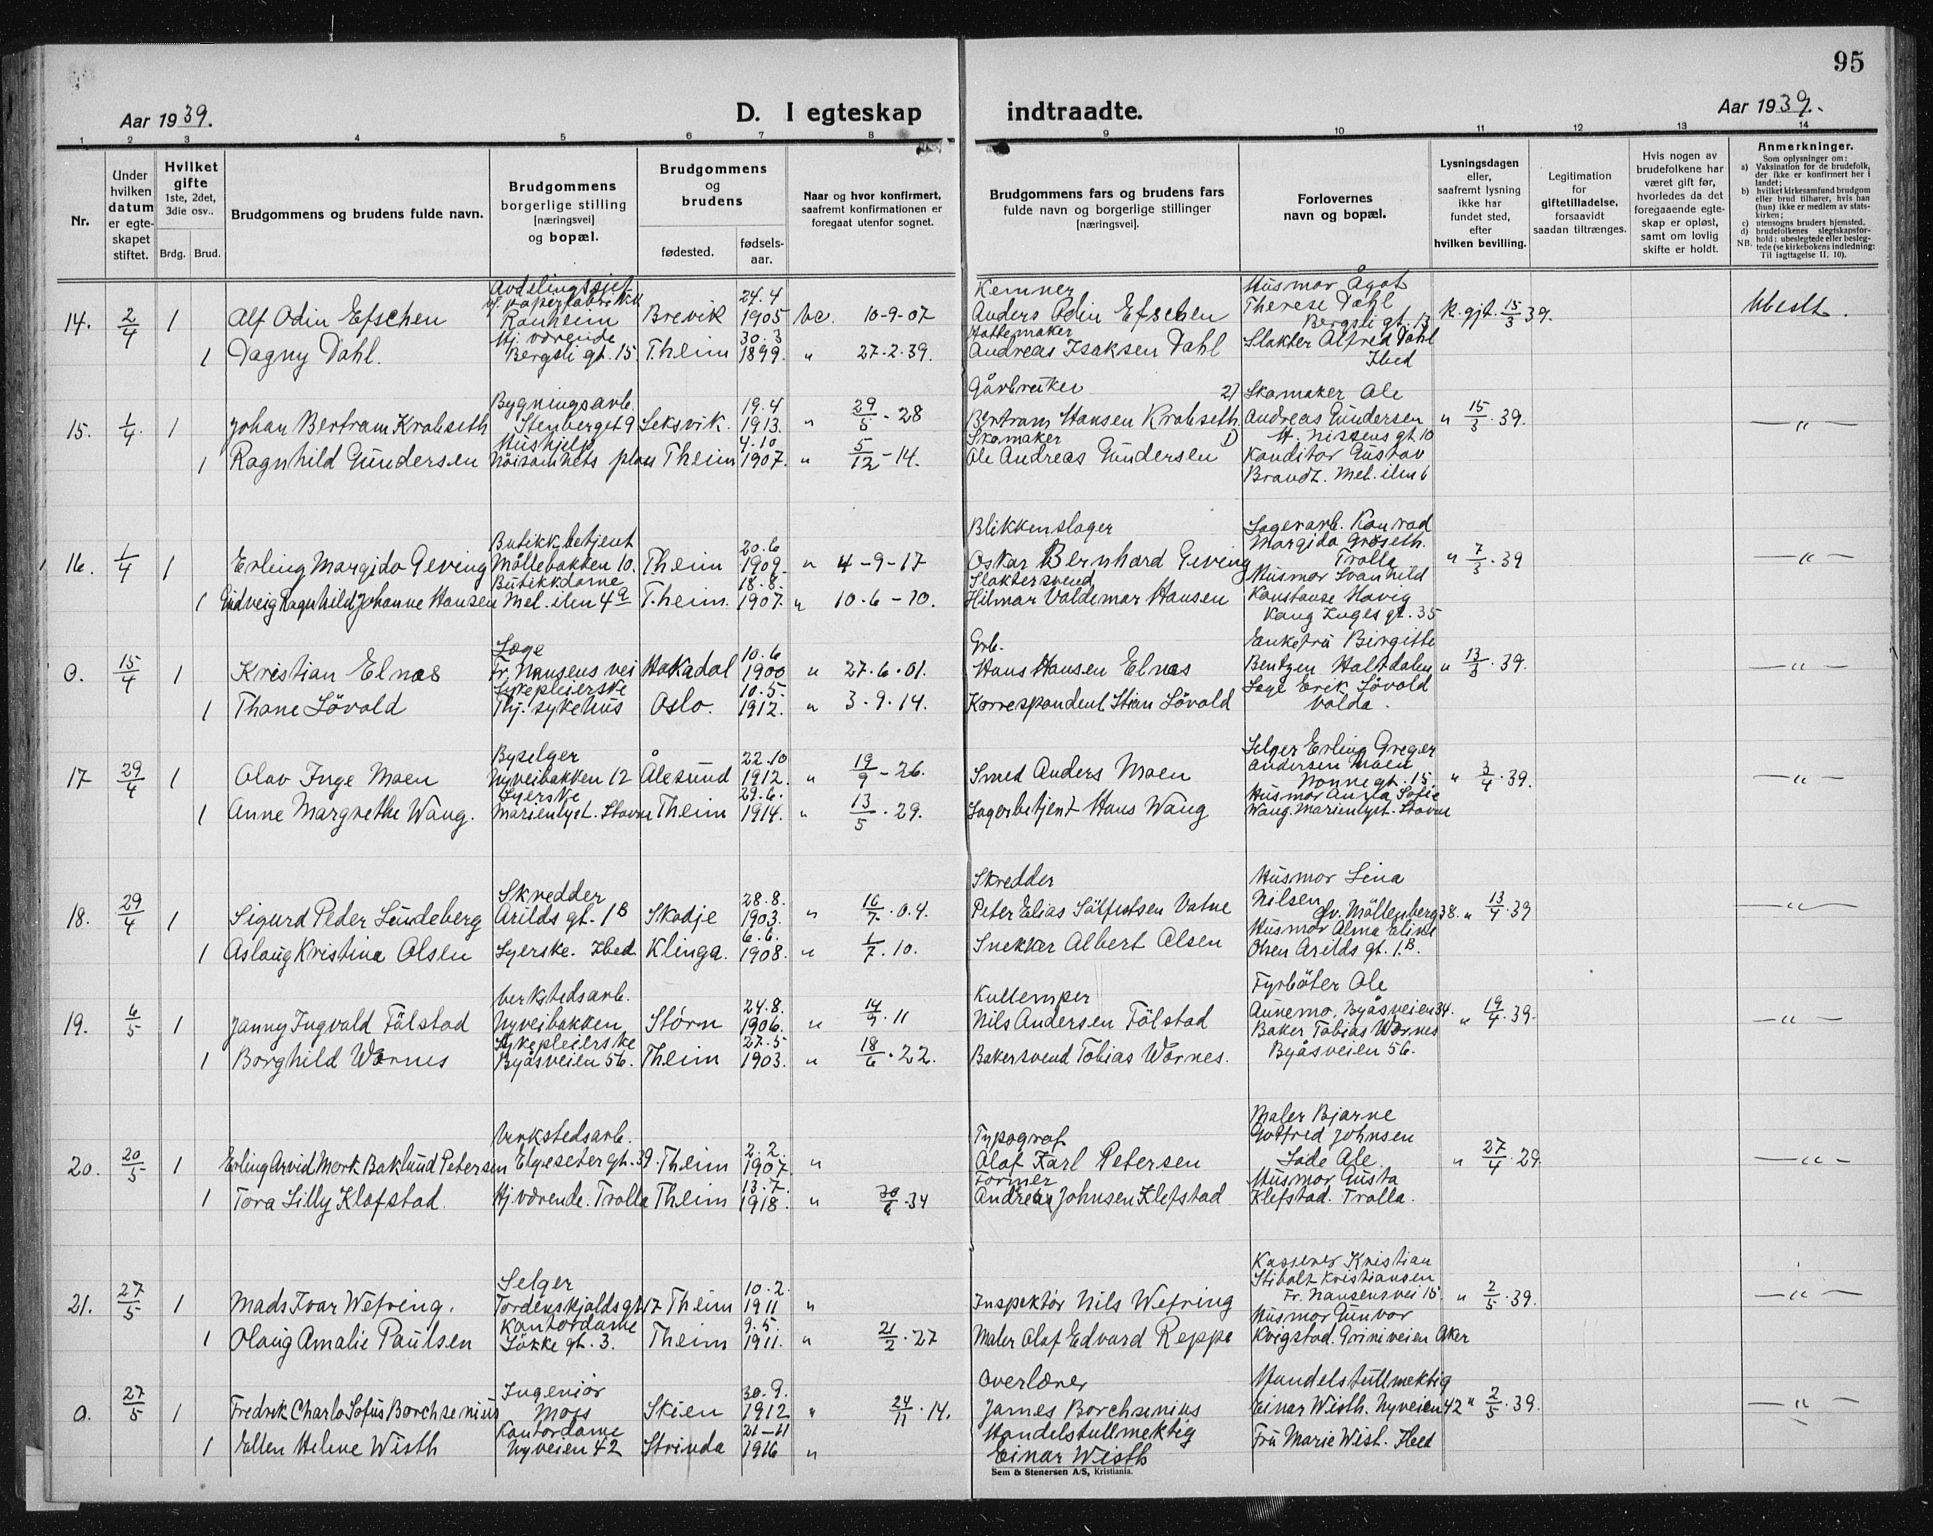 95
Aar 1939.
D. I egteskap indtraadte.
Aar 1939.
1 2 3 4 5 6 7 8 9 10 11 12 13 14
Nr.
Under hvilken datum er egteskapet stiftet.
Hvilket gifte 1ste, 2det, 3die osv..
Brdg. Brud.
Brudgommens og brudens fulde navn.
Brudgommens borgerlige stilling [næringsvei] og bopæl.
Brudgommens og brudens
fødested. fødselsaar.
Naar og hvor konfirmert, saafremt konfirmationen er foregaat utenfor sognet.
Brudgommens fars og brudens fars fulde navn og borgerlige stillinger [næringsvei].
Forlovernes navn og bopæl.
Lysningsdagen eller, saafremt lysning ikke har fundet sted, efter hvilken bevilling.
Legitimation for giftetilladelse, forsaavidt saadan tiltrænges.
Hvis nogen av brudefolkene har været gift før, hvorledes da det foregaaende egteskap er opløst, samt om lovlig skifte er holdt.
Anmerkninger.
Som oplysninger om:
a) Vaksination for de brudefolk, der ikke er konfirmert her i landet;
b) hvilket kirkesamfund brudgom eller brud tilhører, hvis han (hun) ikke er medlem av statskirken;
c) utensogns bruders hjemsted.
d) brudefolkenes slegtskapsforhold; ubeslegtede eller beslegtede (se kirkebokens indledning:
NB. Til iagttagelse II. 10).
Avdelingssjef
24.4 Kemner Husmor Ågot
14. 2/4 1 Alf Odin Efschen Ranheim Brevik 1905 vc. 10-9-07 Anders Odin Efschen Therese Dahl Bergsli gt. 13 K. gjt. 15/3 39. Ubeslt.
Hj. værende 30.3
1 Dagny Dahl. Bergsli gt. 15 T.heim 1899. " 27-2-39. Andreas Isaksen Dahl Slakter Alfred Dahl
Ibed
Bygningsarb. 19.4 Gårbruker 2) Skomaker Ole
15. 1/4 1 Johan Bertram Krabseth Stenberget 9 Leksvik. 1913. " 29/5 - 28 Bertram Hansen Krabseth Andreas Gundersen " 15/3 . 39. — " —
Hushjelp 4.10 Skomaker 1) H. Nissens gt. 10
1 Ragnhild Gundersen Nöisomhets plass T.heim 1907. " 5/12 - 14. Ole Andreas Gundersen Konditor Gustav
Brandt. Mel. ilen 6
Butikkbetjent 20.6 Blikkenslager Lagerarb. Konrad
16. 1/4 1 Erling Margido Geving Möllebakken 10. T.heim 1909. " 4-9-17 Oskar Bernhard Geving Margido Gröseth. Trolla " 7/3 . 39 — " —
Butikkdame 18.8. Slaktersvend Husmor Svanhild
1 Gudveig Ragnhild Johanne Hansen Mel. ilen 4a T.heim. 1907. " 10.6-10. Hilmar Valdemar Hansen Konstanse Havig
Kong Inges gt. 35
Læge 10.6 Grb. Enkefru Birgitte
0. 15/4 1 Kristian Elnæs Fr. Nansens vei Hakadal 1900 " 27.6.01. Hans Hansen Elnæs Bentzen Haltdalen " 13/3 . 39. — " —
Sykepleierske 10.5. Læge Erik Lövold
1 Thone Lövold Thj. sykehus Oslo. 1912. " 3.9.14. Korrespondent Stian Lövold Volda.
Byselger 22.10 Selger Erling Greger
17 29/4 1 Olav Inge Moen Nyveibakken 12 Ålesund 1912. " 19/9 - 26. Smed Anders Moen Andersen Moen Nonnegt. 15 " 3/4 . 39. — " —
Syerske 29.6. Husmor Anna Sofie
1 Anne Margrethe Wang. Marienlyst. Stavne T.heim 1914. " 13/5 . 29. Lagerbetjent Hans Wang Wang. Marienlyst. Stavne
Skredder 28.8. Skredder Husmor Lina
18. 29/4 1 Sigurd Peder Lundeberg Arilds gt. 1B Skodje 1903. " 16/7 . 04. Peter Elias Vatne Nilsen Öv. Möllenberg 38. " 13/4 . 39 — " —
6.6. Husmor Alma Eline
1 Aslaug Kristina Olsen Syerske. Ibed Klinga. 1908. " 1/7 . 10. Snekker Albert Olsen Olsen Arilds gt. 1B.
Verkstedsarb. 24.8. Kullemper Fyrböter Ole
19. 6/5 1 Janny Ingvald Fölstad Nyveibakken Störn 1906. " 14/9 . 11 Nils Andersen Fölstad Aunemo, Byåsveien 34. " 19/4 . 39. — " —
Sykepleierske 27.5 Baker Tobias Wærnes
1 Borghild Wærnes Byåsveien 56. T.heim 1903. " 18/6 . 22. Bakersvend Tobias Wærnes. Byåsveien 56.
Verkstedsarb. 2.2. Typograf Maler Bjarne Gotfred Johnsen
20. 20/5 1 Erling Arvid Mork Baklund Petersen Elgeseter gt. 39. T.heim 1907 " Olaf Karl Petersen Lade Ale. " 27/4 . 29. — " —
13.7. Former Husmor Gusta
1 Tora Lilly Klefstad. Hj. værende. Trolla T.heim 1918. " 30/6 . 34 Andreas Johnsen Klefstad Klefstad. Trolla.
Selger 10.2. Kasserer Kristian Stibolt Kristiansen
21. 27/5 1 Mads Ivar Wefring. Tordenskjolds gt. 17 T.heim 1911 " Inspektör Nils Wefring Fr. Nansensvei 15 " 2/5 . 39. — " —
Kontordame 9.5. Husmor Gunvor
1 Olaug Amalie Paulsen Lökke gt. 3. T.heim 1911. " 21/2 . 27 Maler Olaf Edvard Reppe Kvigstad. Griniveien Aker
Ingeniör 30.9. Overlærer Handelsfullmektig
0. 27/5 1 Fredrik Charlo Sofus Borchsenius Moss Skien 1912 " 24/11 . 14. James Borchsenius Einar Wisth. Nyveien 42 " 2/5 . 39. — " —
Kontordame 21-11 Handelsfullmektig
1 Ellen Helene Wisth Nyveien 42 Strinda 1916 " Einar Wisth Fru Marie Wist. Ibed
Sem & Stenersen A/S, Kristiania.